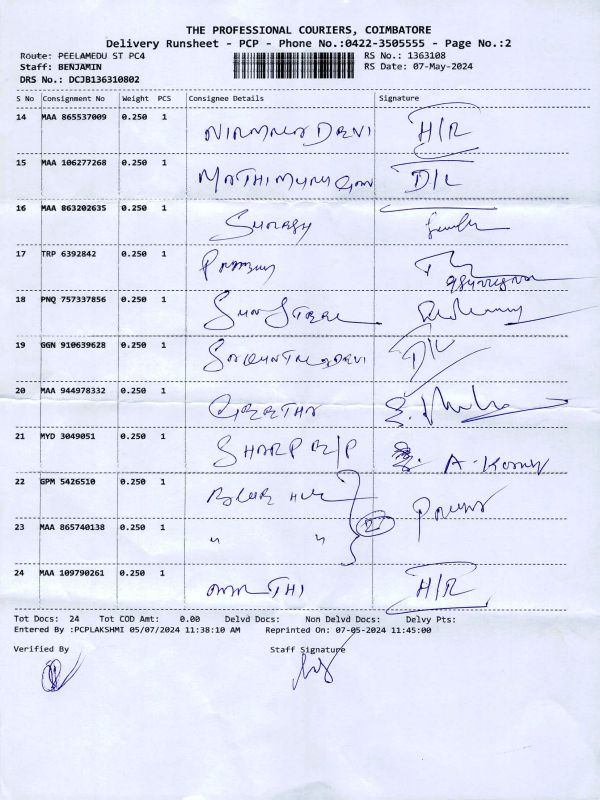 THE PROFESSIONAL COURIERS, COIMBATORE
Delivery Runsheet - PCP - Phone No.:0422-3505555 - Page No.:2
Route: PEELAMEDU ST PC4 RS No.: 1363108
Staff: BENJAMIN RS Date: 07-May-2024
DRS No.: DCJB136310802
S No Consignment No Weight PCS Consignee Details Signature
14 MAA 865537009 0.250 1 NIRMALA DEVI H/R
15 MAA 106277268 0.250 1 MATHIMURUGAN D/L
16 MAA 863202635 0.250 1 Suresh
17 TRP 6392842 0.250 1
18 PNQ 757337856 0.250 1 Sun Steel
19 GGN 910639628 0.250 1 SAKUNTALADEVI D/L
20 MAA 944978332 0.250 1 GEETHA
21 MYD 3049051 0.250 1 SHARP E/P
22 GPM 5426510 0.250 1 2
23 MAA 865740138 0.250 1 " "
24 MAA 109790261 0.250 1 H/R
Tot Docs: 24 Tot COD Amt: 0.00 Delvd Docs: Non Delvd Docs: Delvy Pts:
Entered By :PCPLAKSHMI 05/07/2024 11:38:10 AM Reprinted On: 07-05-2024 11:45:00
Verified By Staff Signature